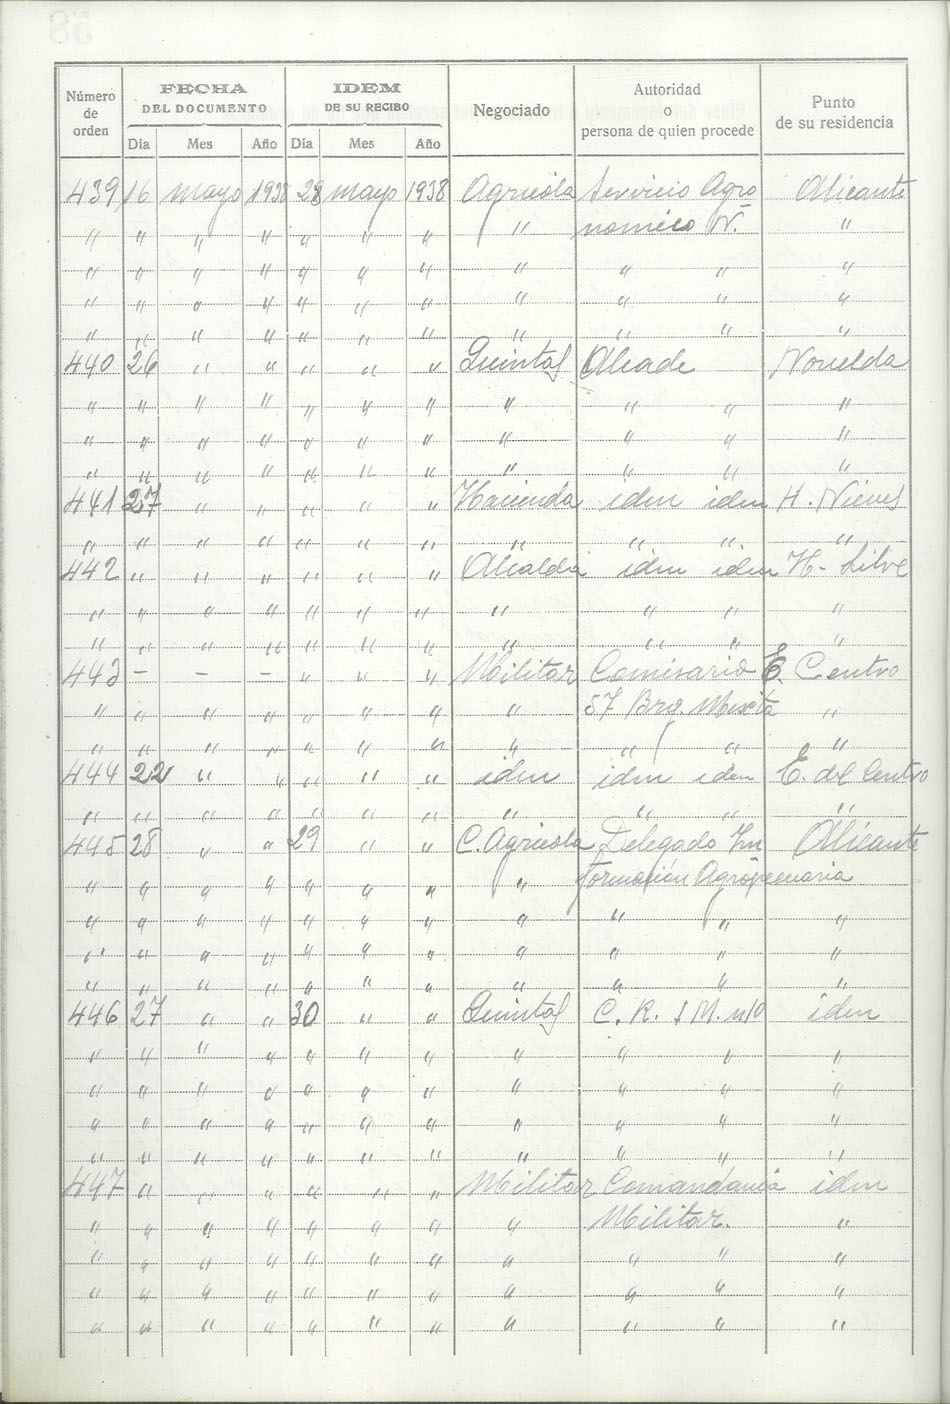 Número de orden | FECHA DEL DOCUMENTO | IDEM DE SU RECIBO | Negociado | Autoridad o persona de quien procede | Punto de su residencia
Día | Mes | Año | Día | Mes | Año
439 16 mayo 1938 28 mayo 1938 Agricola Servicio Agro Alicante
" " " " " " " " nomico N. "
" " " " " " " " " " "
" " " " " " " " " " "
" " " " " " " " " " "
440 26 " " " " " Quintas Alcade Novelda
" " " " " " " " " " "
" " " " " " " " " " "
" " " " " " " " " " "
441 27 " " " " " Hacienda idem idem H. Nieves
" " " " " " " " " " "
442 " " " " " " Alcaldia idem idem H-
" " " " " " " " " " "
" " " " " " " " " " "
443 - - - " " " Militar Comisario E. Centro
" " " " " " " " 57 Bra. Mixta "
" " " " " " " " " " "
444 22 " " " " " idem idem idem E. del Centro
" " " " " " " " " " "
445 28 " " 29 " " C. Agricola Delegado In Alicante
" " " " " " " " formación Agropecuaria
" " " " " " " " " " "
" " " " " " " " " " "
" " " " " " " " " " "
446 27 " " 30 " " Quintas C. R. I M. idem
" " " " " " " " " " "
" " " " " " " " " " "
" " " " " " " " " " "
" " " " " " " " " " "
447 " " " " " " Militar Comandancia idem
" " " " " " " " Militar. "
" " " " " " " " " " "
" " " " " " " " " " "
" " " " " " " " " " "